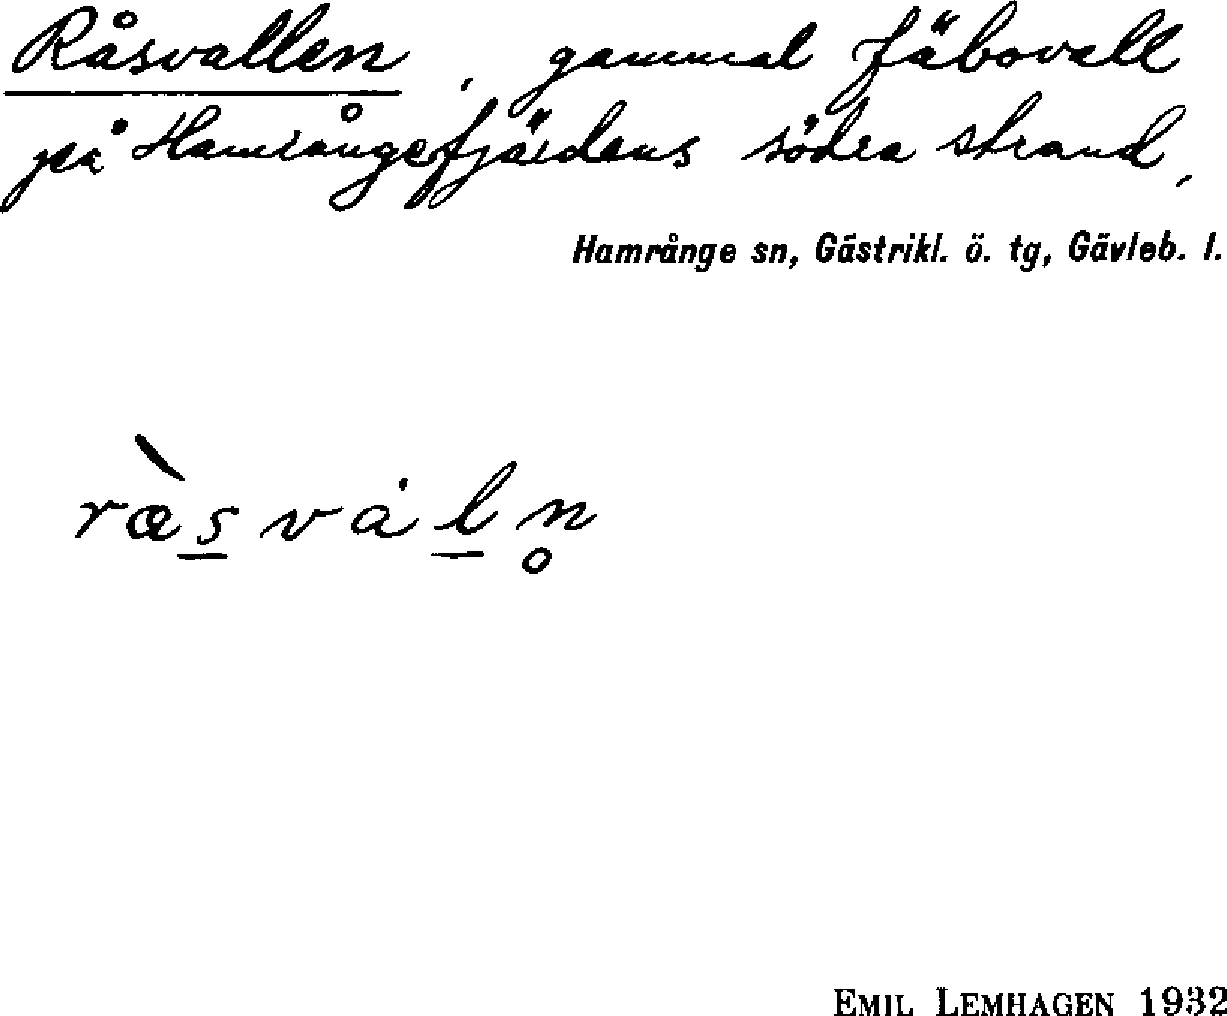 Råsvallen, gammal fäbovall
på Hamrångefjärdens södra strand,
Hamrånge sn, Gästrikl. ö. tg, Gävleb. l.
ræ̀s̲ vȧl̲n̥
EMIL LEMHAGEN 1932